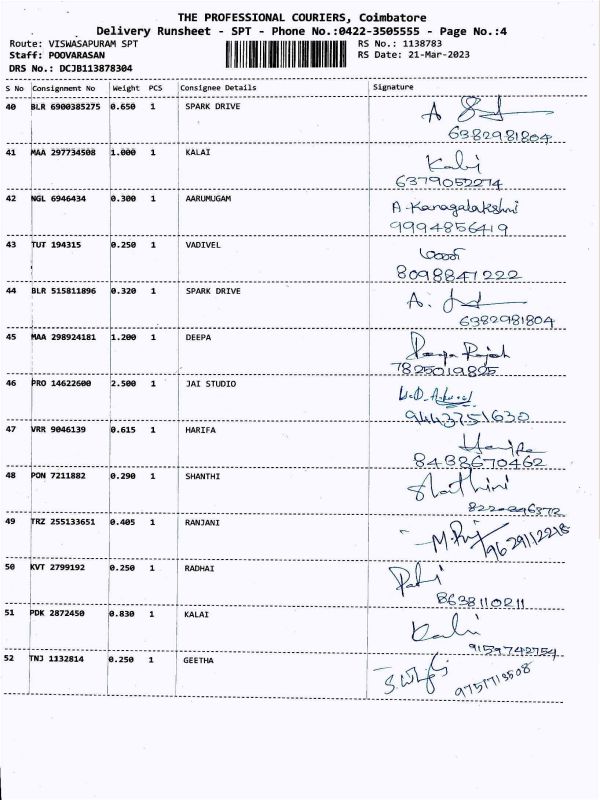 THE PROFESSIONAL COURIERS, Coimbatore
Delivery Runsheet - SPT - Phone No.:0422-3505555 - Page No.:4
Route: VISWASAPURAM SPT
RS No.: 1138783
Staff: POOVARASAN
RS Date: 21-Mar-2023
DRS No.: DCJB113878304
S No Consignment No Weight PCS Consignee Details Signature
40 BLR 6900385275 0.650 1 SPARK DRIVE
6382981804
41 MAA 297734508 1.000 1 KALAI
6379052274
42 NGL 6946434 0.300 1 AARUMUGAM A. Kanagalakshmi
9994856419
43 TUT 194315 0.250 1 VADIVEL
8098841222
44 BLR 515811896 0.320 1 SPARK DRIVE
6382981804
45 MAA 298924181 1.200 1 DEEPA
7825019825
46 PRO 14622600 2.500 1 JAI STUDIO
9443751630
47 VRR 9046139 0.615 1 HARIFA
8438670462
48 PON 7211882 0.290 1 SHANTHI Shathini
49 TRZ 255133651 0.405 1 RANJANI
9629112218
50 KVT 2799192 0.250 1 RADHAI
8638110211
51 PDK 2872450 0.830 1 KALAI
9159742754
52 TNJ 1132814 0.250 1 GEETHA
9751713508